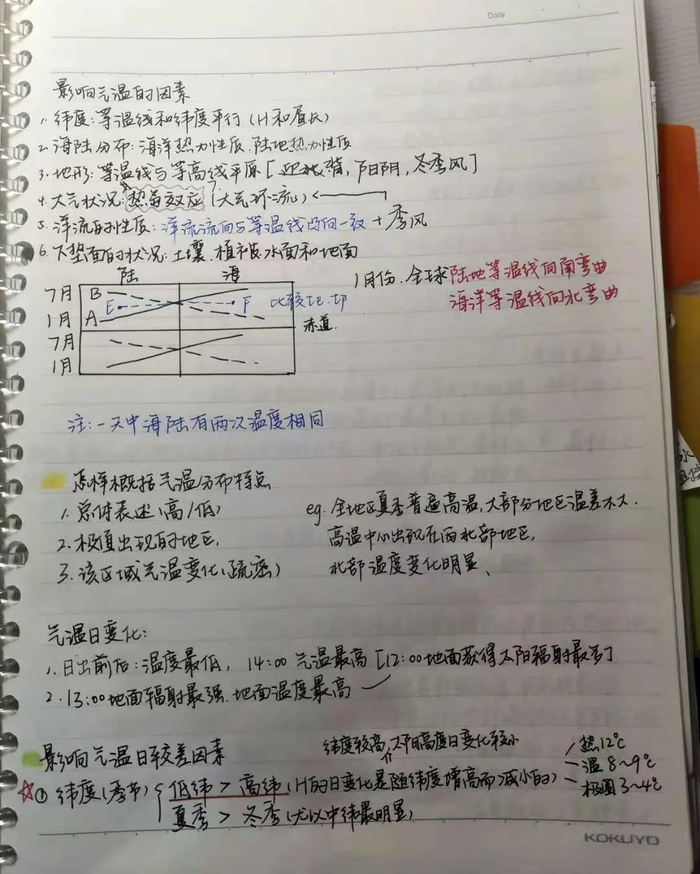 Date
影响气温的因素
1. 纬度:等温线和纬度平行(H和昼长)
2. 海陆分布:海洋热力性质.陆地热力性质
3. 地形:等温线与等高线平原[迎北背,阳阴,冬季风]
4. 大气状况:热岛效应(大气环流)
5. 洋流的性质:洋流流向与等温线凸向一致+季风
6. 下垫面的状况:土壤.植被.水面和地面
陆 海
7月 B
E F 比较
1月 A
赤道.
7月
1月
1月份.全球陆地等温线向南弯曲
海洋等温线向北弯曲
注:一天中海陆有两次温度相同
怎样概括气温分布特点
1. 总体表述(高/低) eg. 全地区夏季普遍高温,大部分地区温差不大.
2. 极值出现的地区. 高温中心出现在西北部地区,
3. 该区域气温变化(疏密) 北部温度变化明显、
气温日变化:
1. 日出前后:温度最低, 14:00 气温最高[12:00地面获得太阳辐射最多]
2. 13:00地面辐射最强.地面温度最高
影响气温日较差因素
纬度较高,太阳高度日变化较小
☆① 纬度(季节) 低纬 > 高纬(H的日变化是随纬度增高而减小的)
夏季 > 冬季(尤以中纬最明显)
热12℃
温 8~9℃
极圈 3~4℃
KOKUYO